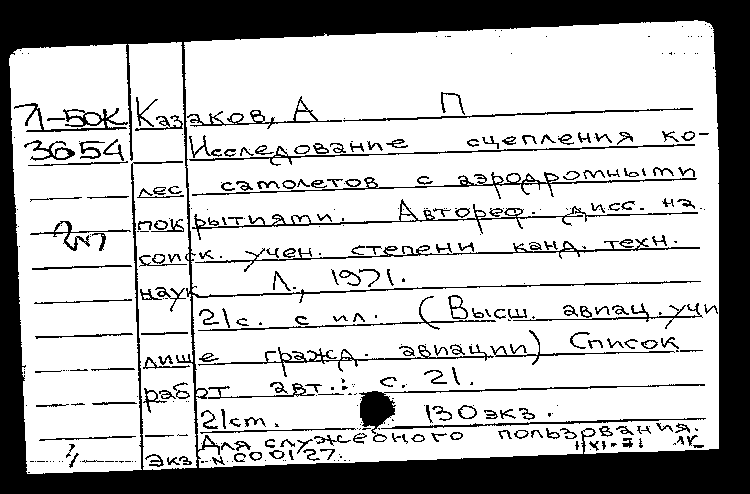 71-50К Казаков, А П
3654 Исследование сцепления ко-
лес самолетов с аэродромными
покрытиями. Автореф. дисс. на
соиск. учен. степени канд. техн.
наук Л., 1971.
21с. с ил. (Высш. авиац. учи
лище гражд. авиации) Список
работ авт.: с. 21.
21см. 130экз.
Для служебного пользования.
Экз. N 000127. 1|XI-71